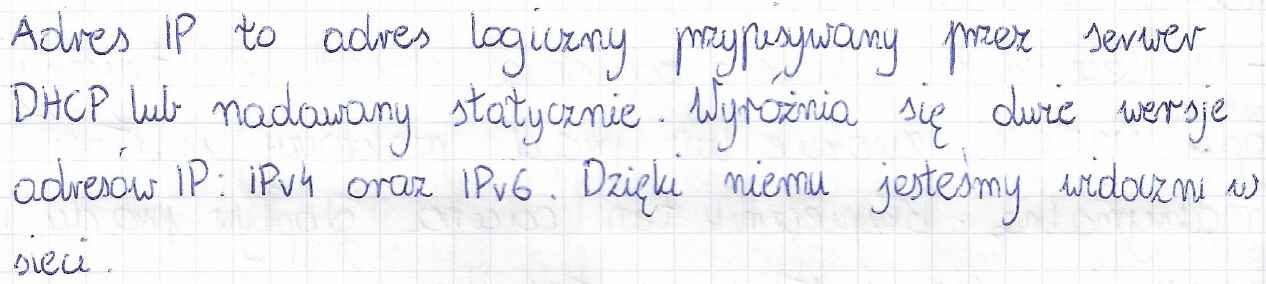 Adres IP to adres logiczny przypisywany przez serwer
DHCP lub nadawany statycznie. Wyróżnia się dwie wersje
adresów IP: IPv4 oraz IPv6. Dzięki niemu jesteśmy widoczni w
sieci.